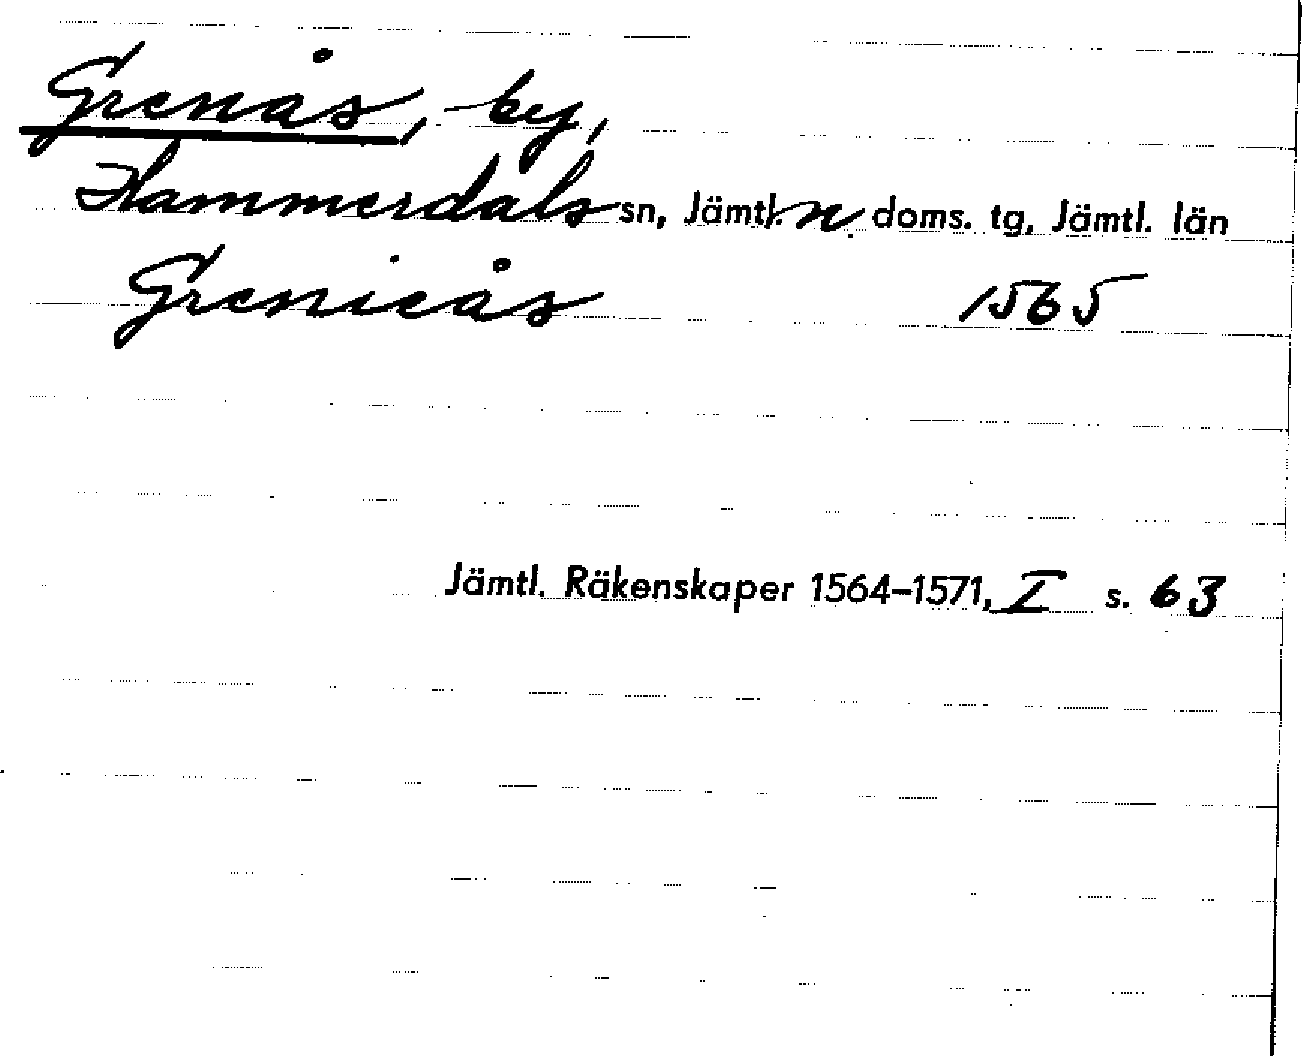 Grenås, by,
Hammerdals sn, Jämtl. n. doms. tg, Jämtl. län
Grenieås 1565
Jämtl. Räkenskaper 1564–1571, I s. 63